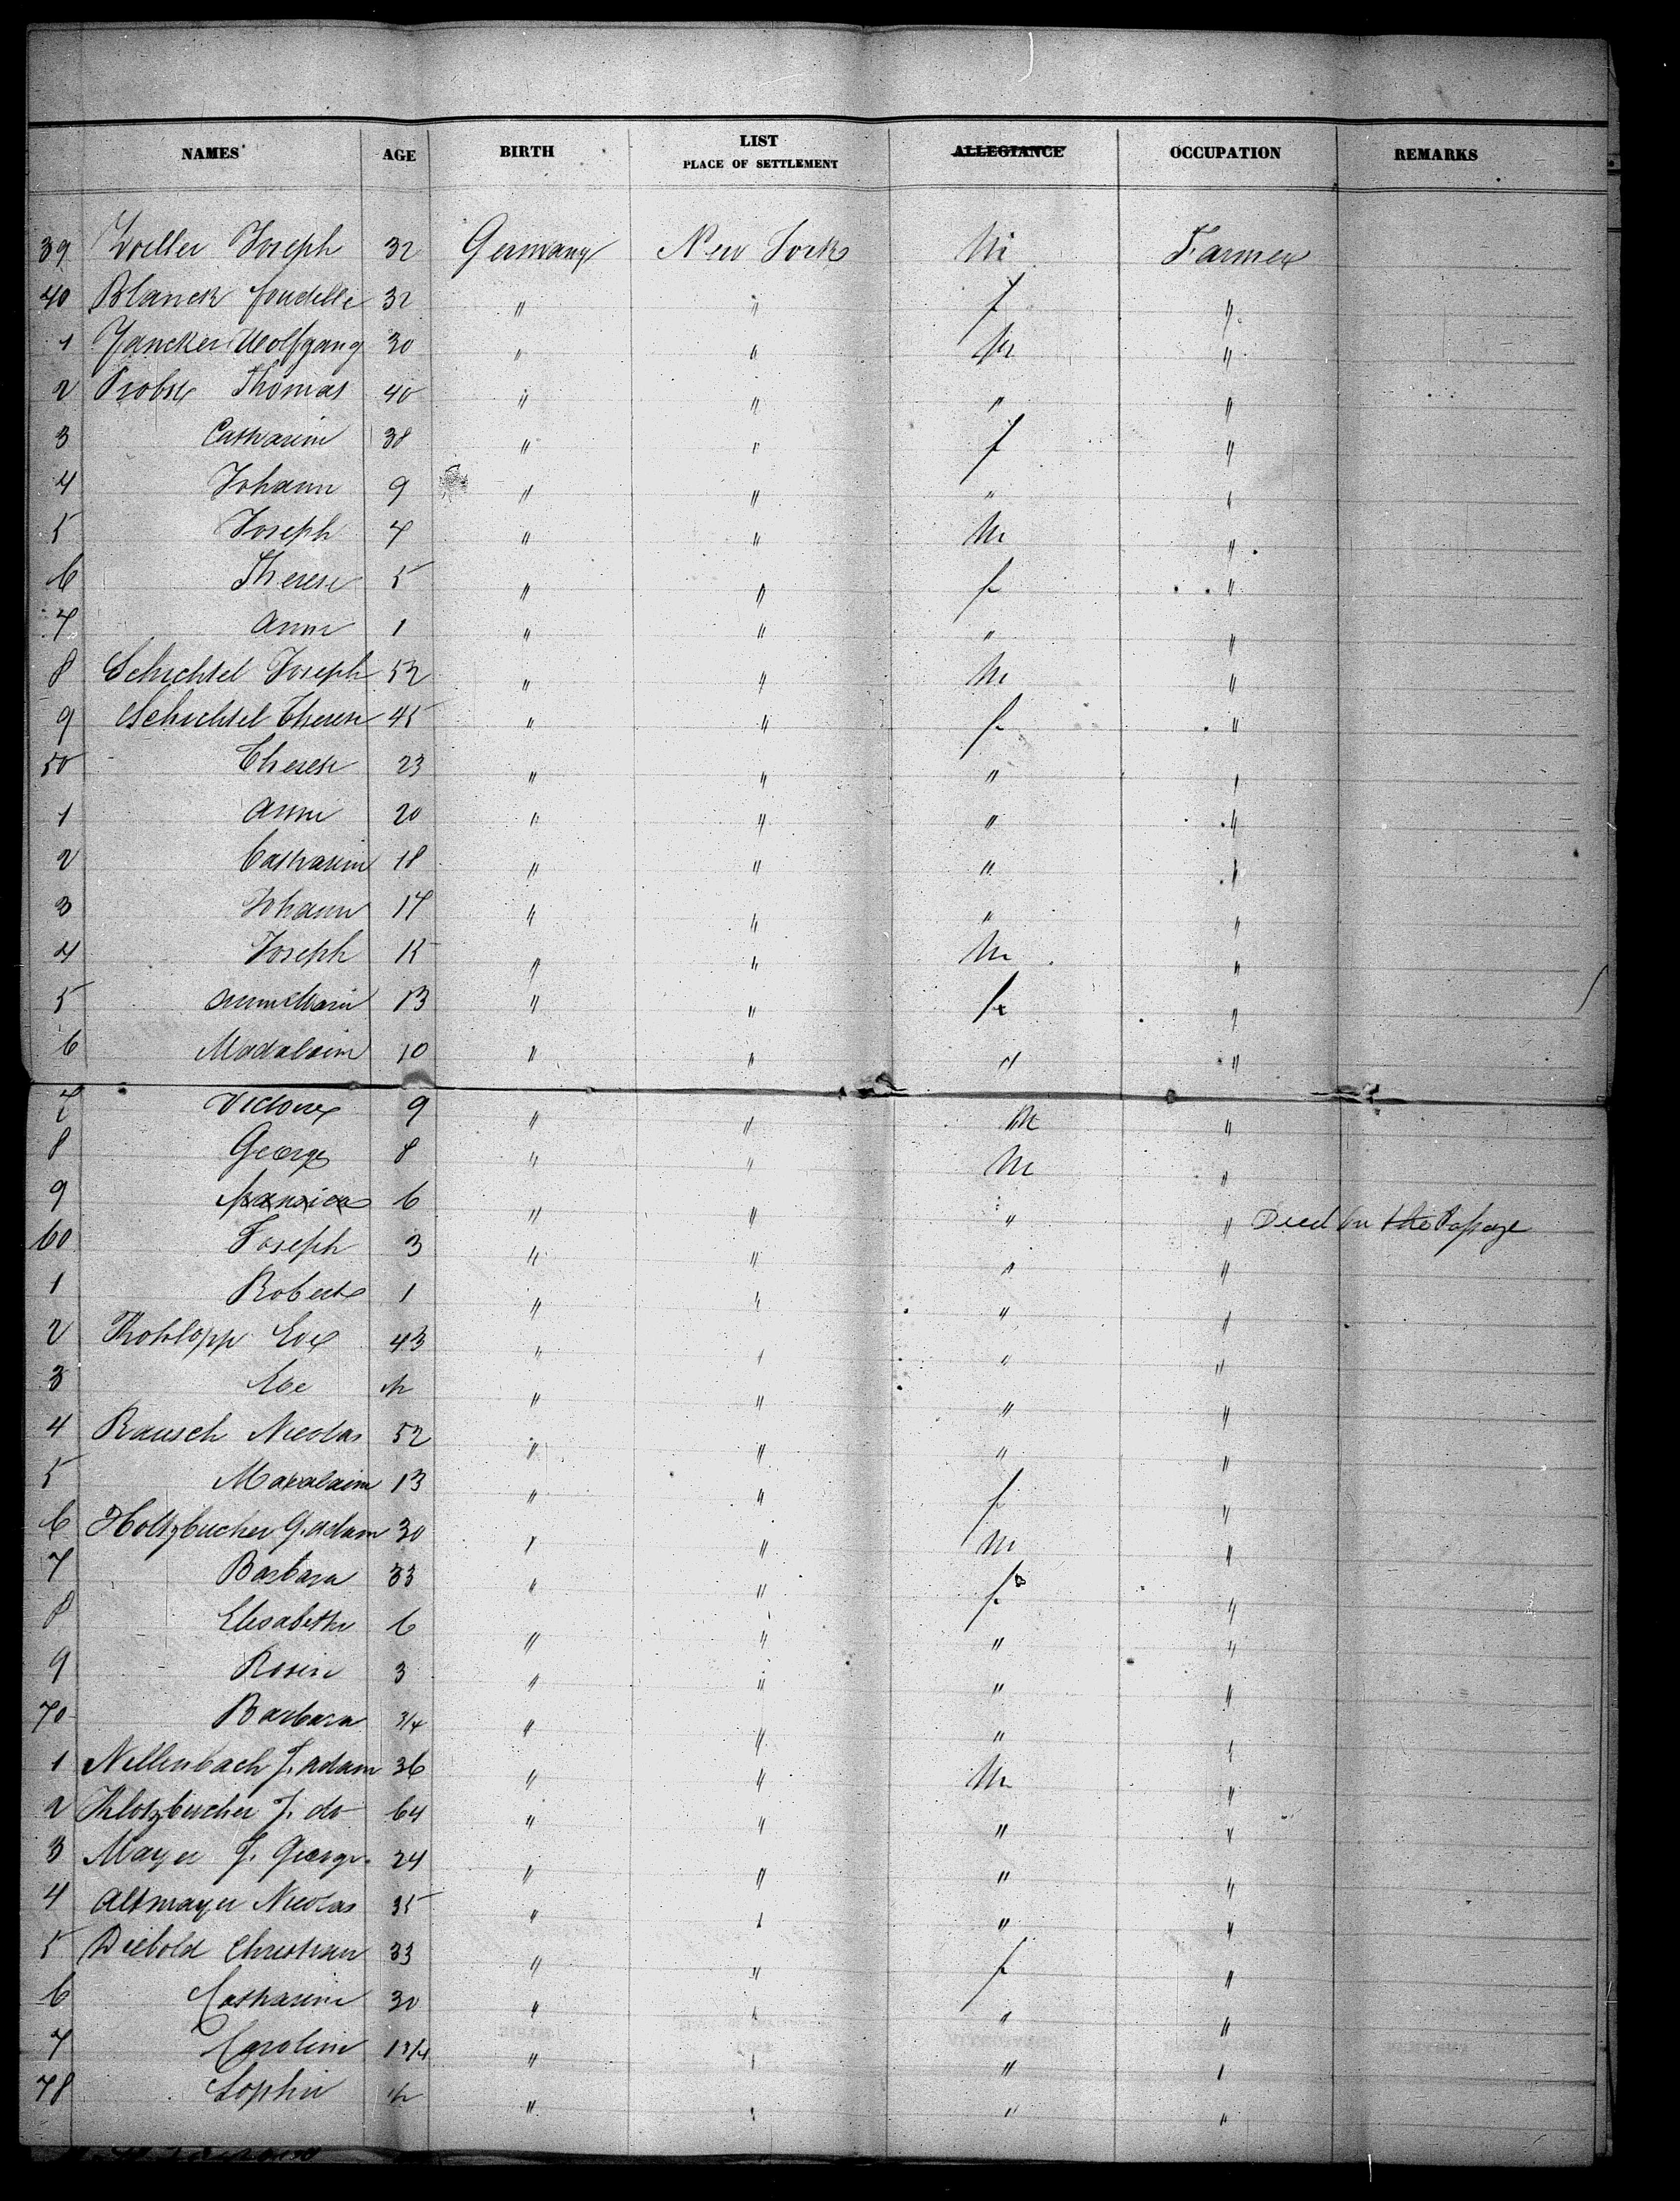 NAMES AGE BIRTH LIST PLACE OF SETTLEMENT ALLEGIANCE OCCUPATION REMARKS
39 Joseph 32 Germany New York M Farmer
40 Blanck 32 " " f "
1 Jancker Wolfgang 30 " " M "
2 Probst Thomas 40 " " " "
3 Catharin 38 " " f "
4 Johann 9 " " " "
5 Joseph 7 " " M "
6 Therese 5 " " f "
7 Anne 1 " " " "
8 Schichtel Joseph 52 " " M "
9 Schichtel Therese 45 " " f "
50 Therese 23 " " " "
1 Anne 20 " " " "
2 Catharin 18 " " " "
3 Johann 17 " " " "
4 Joseph 15 " " M "
5 13 " " f "
6 Madalain 10 " " " "
7 9 " " M "
8 George 8 " " M "
9 6 " " " " Died on the Passage
60 Joseph 3 " " " "
1 Robert 1 " " " "
2 Eve 43 " " " "
3 Eve " " " "
4 Rausch Nicolas 52 " " " "
5 13 " " f "
6 Holtzbucher G. Adam 30 " " M "
7 Barbara 33 " " f "
8 Elisabeth 6 " " " "
9 Rosin 3 " " " "
70 Barbara 3/4 " " " "
1 Nellenbach J. Adam 36 " " M "
2 Klotzbucher J. do 64 " " " "
3 Mayer J. George 24 " " " "
4 Altmayer Nicolas 35 " " " "
5 Diebold Christian 33 " " f "
6 Catharine 30 " " " "
7 Carolin 1 3/4 " " " "
78 Sophie " " " "